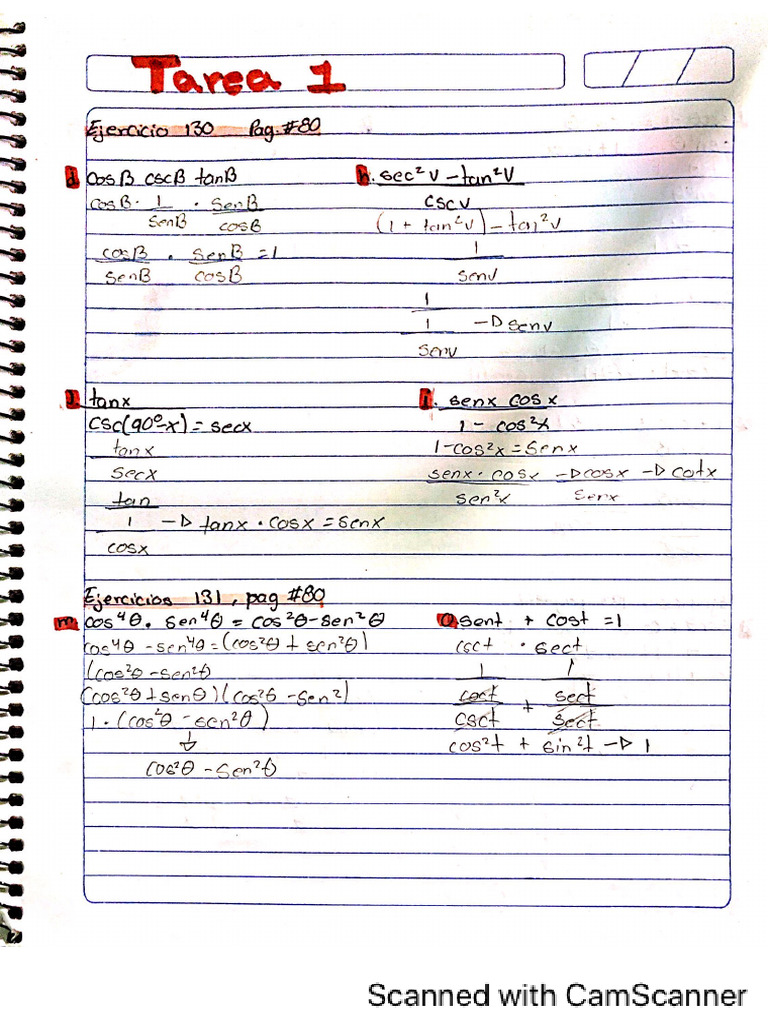 Tarea 1
Ejercicio 130 Pag. #80
d. cosB cscB tanB
cosB · 1/senB · senB/cosB
cosB/senB · senB/cosB = 1
h. sec²v - tan²v / cscv
(1 + tan²v) - tan²v / 1/senv
1 / 1/senv → senv
tanx
csc(90°-x) = secx
tanx
secx
tan
1 → tanx · cosx = senx
cosx
i. senx cosx
1 - cos²x
1-cos²x = senx
senx · cosx / sen²x → cosx / senx → cotx
Ejercicios 131, pag #80
m. cos⁴θ · sen⁴θ = cos²θ - sen²θ
cos⁴θ - sen⁴θ = (cos²θ + sen²θ)
(cos²θ - sen²θ)
(cos²θ + senθ)(cos²θ - sen²)
1 · (cos²θ - sen²θ)
↓
cos²θ - sen²θ
sent + cost = 1
csct · sect
1 1
+ sect
csct sect
cos²t + sin²t → 1
Scanned with CamScanner